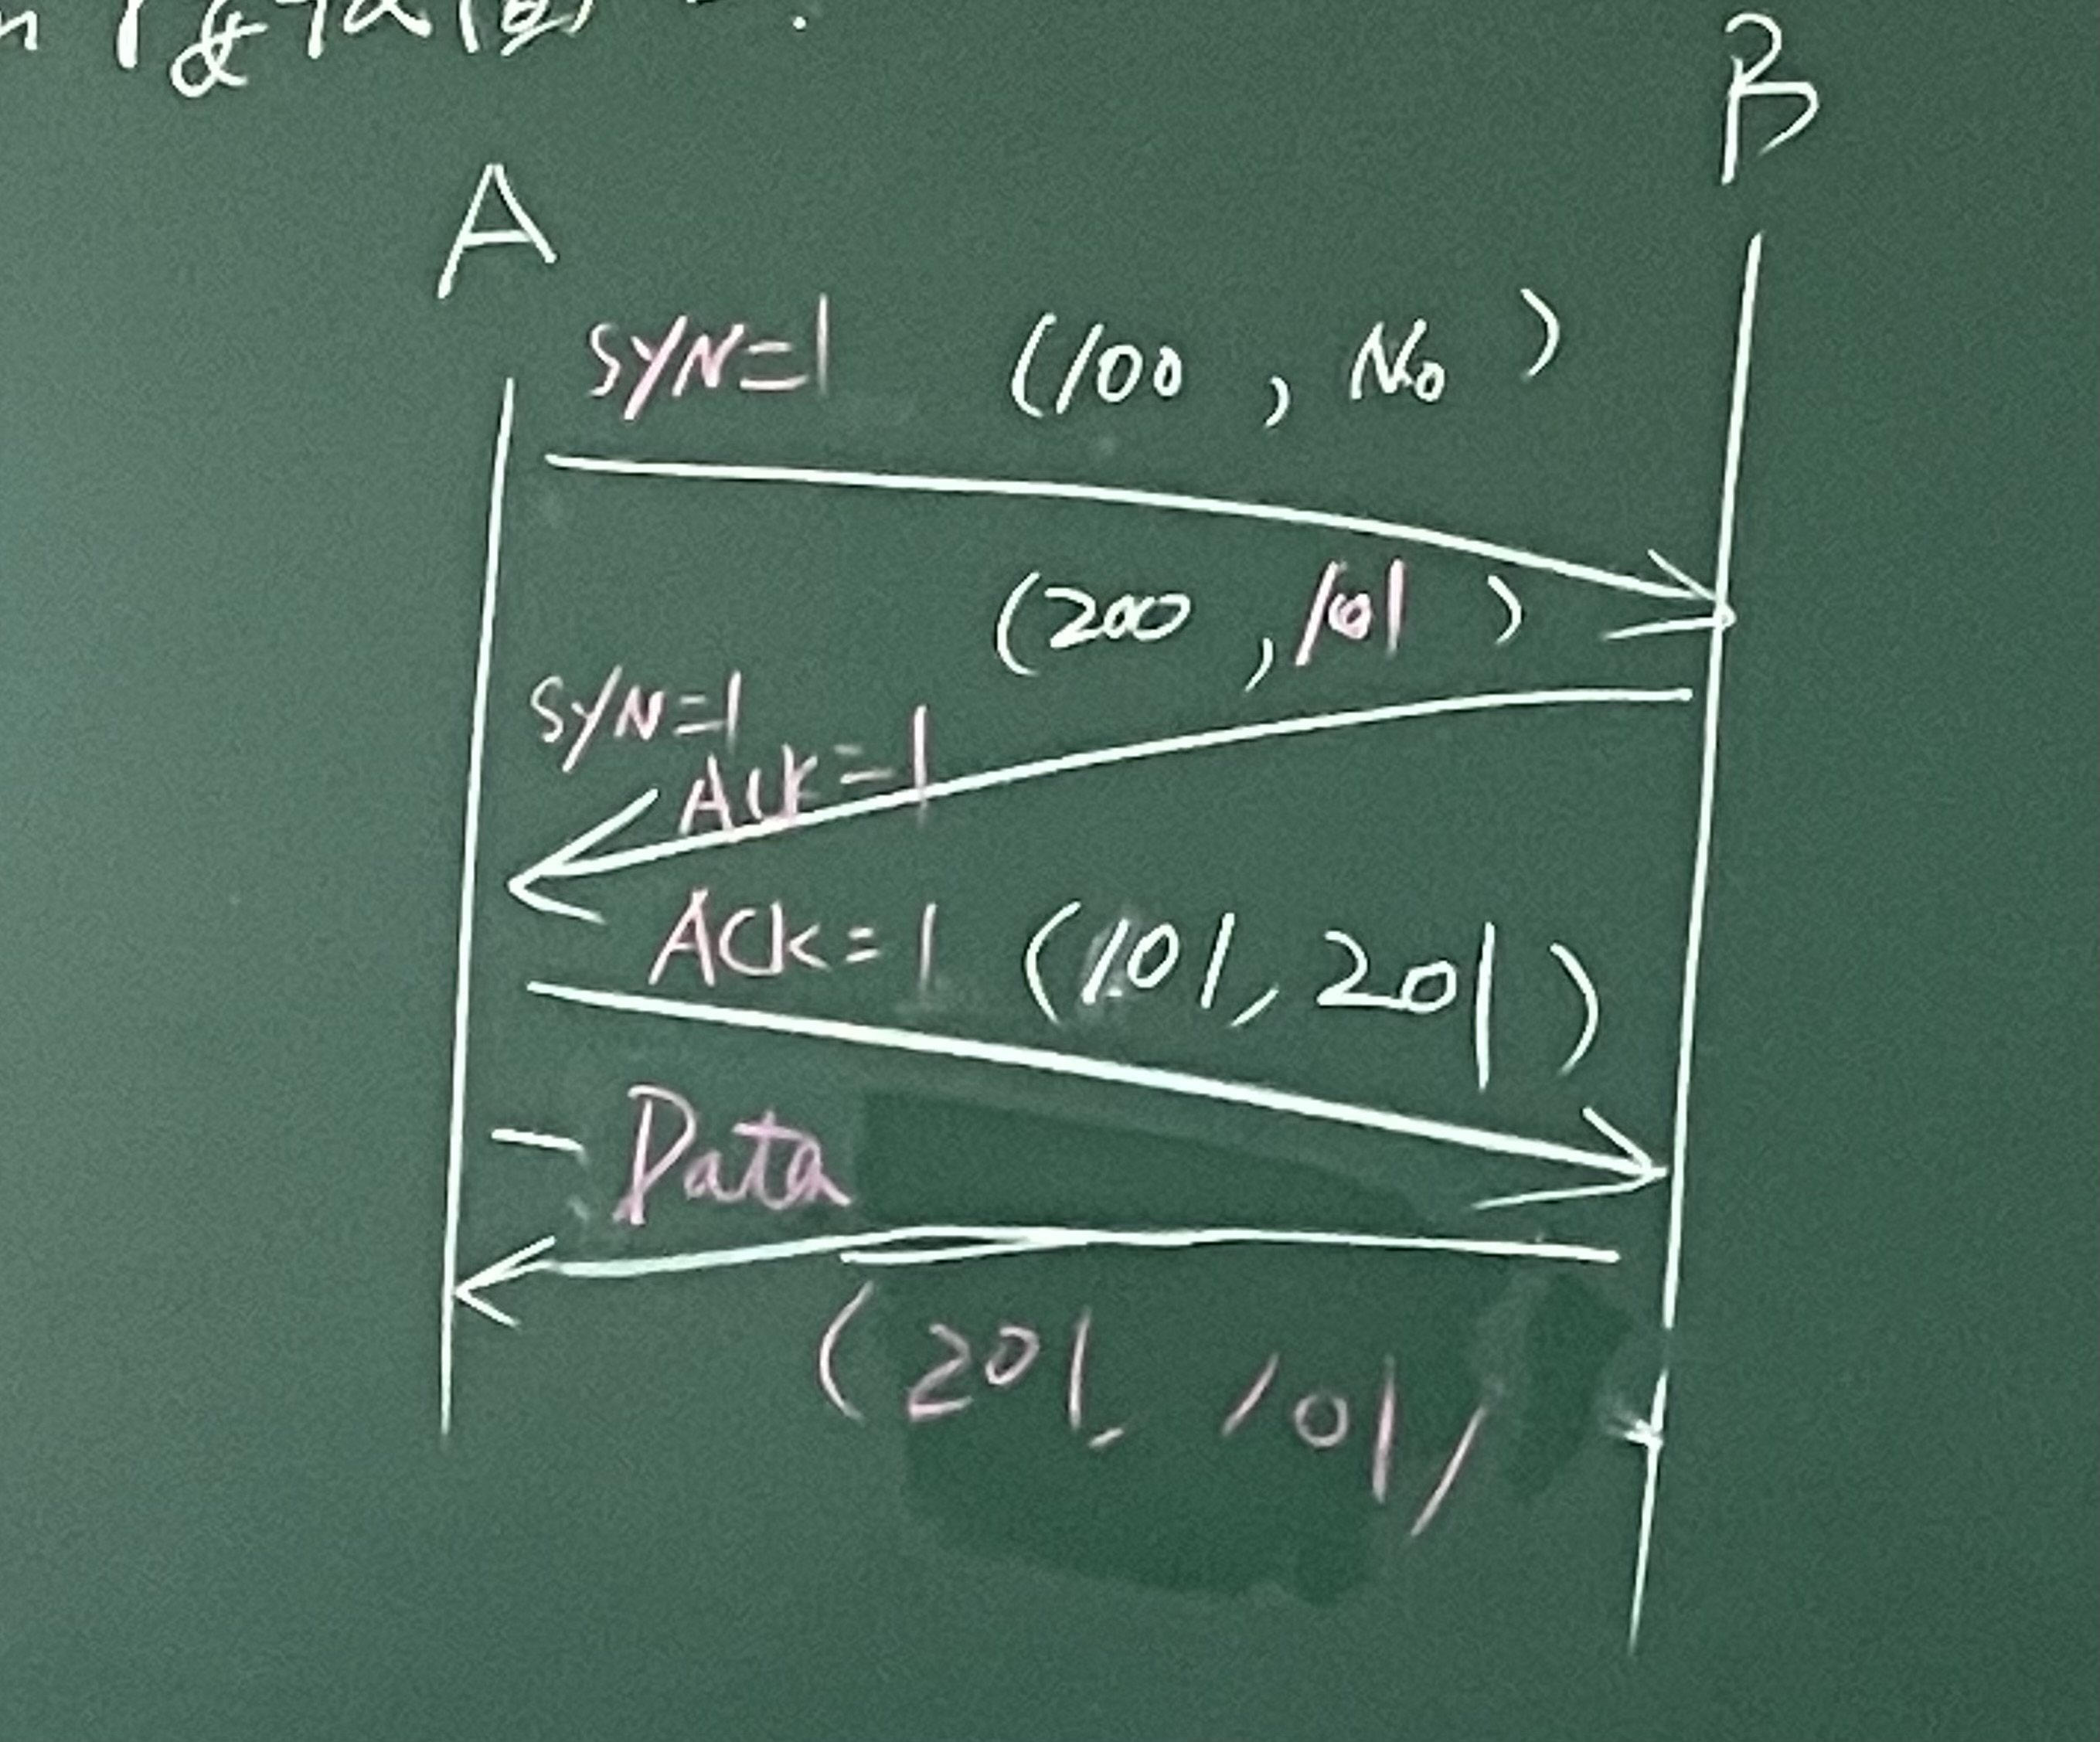 B
A
SYN=1 (100, No)
(200, 101)
SYN=1
Ack=1
ACK=1 (101, 201)
Data
(201, 101)